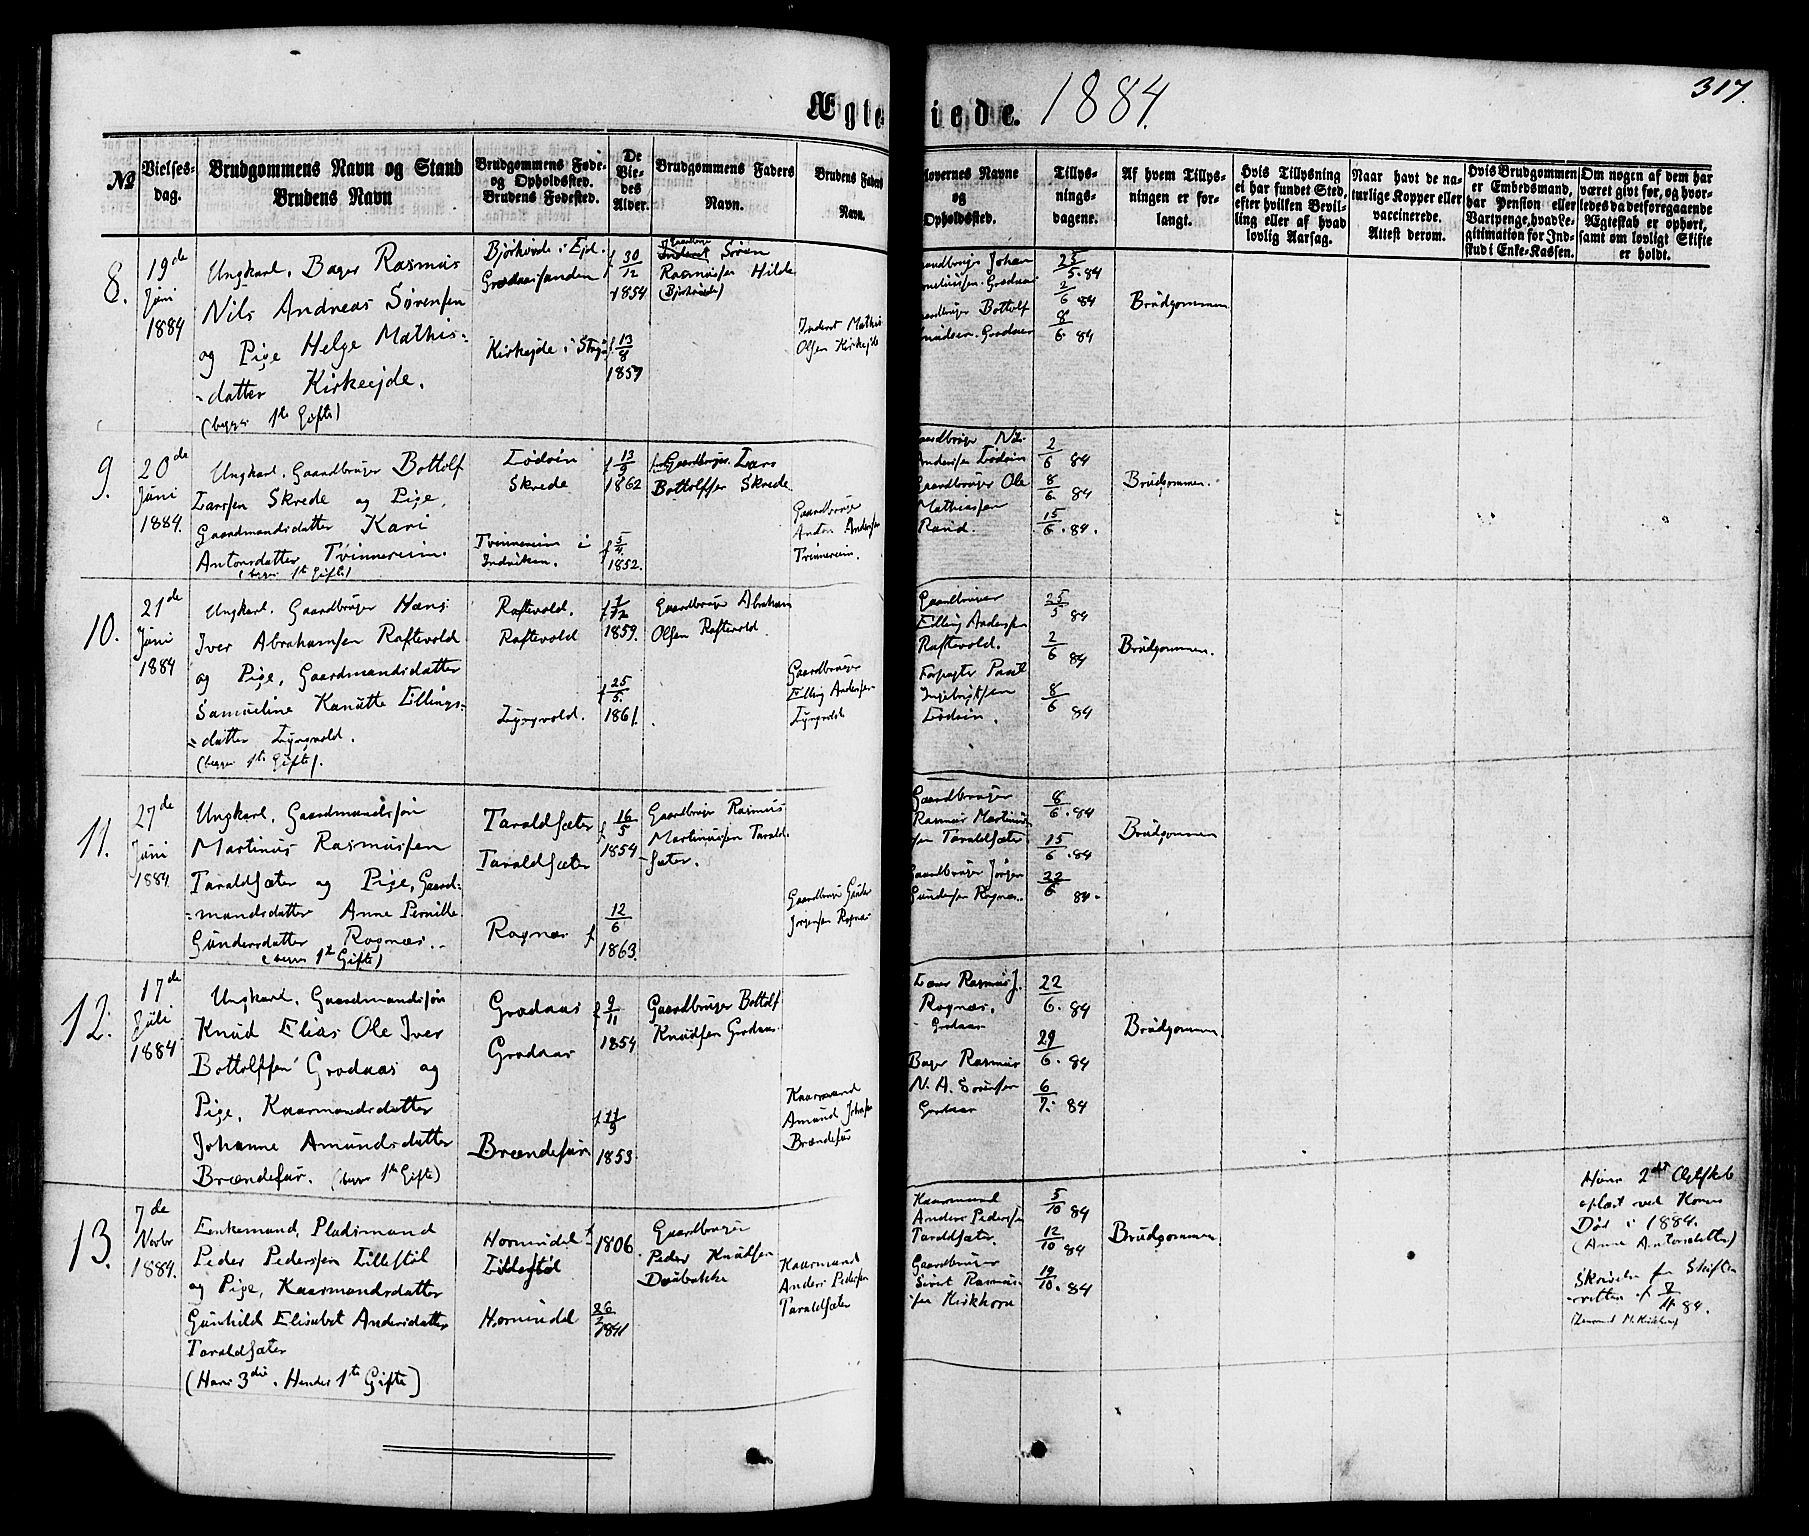 Ægte
iede. 1884.
317.
№
Vielses-
dag.
Brudgommens Navn og Stand
Brudens Navn
Brudgommens Føde-
og Opholdssted.
Brudens Fødested.
De
Vie-
des
Alder.
Brudgommens Faders
Navn.
Brudens Faders
Navn.
lovernes Navne
og
Opholdssted.
Tillys-
nings-
dagene.
Af hvem Tillys-
ningen er for-
langt.
Hvis Tillysning
ei har fundet Sted,
efter hvilken Bevil-
ling eller af hvad
lovlig Aarsag.
Naar havt de na-
turlige Kopper eller
vaccinerede.
Attest derom.
Hvis Brudgommen
er Embedsmand,
har Pension eller
Vartpenge, hvad Le-
gitimation for Ind-
skud i Enke-Kassen.
Om nogen af dem har
været givt før, og hvor-
ledes da det foregaaende
Ægteskab er ophørt,
samt om lovligt Skifte
er holdt.
8.
19de
Juni
1884
Ungkarl, Bager Rasmus
Nils Andreas Sørensen
og Pige Helge Mathis-
-datter Kirkeijde.
(begge 1ste Gifte)
Grodaassanden
Kirkejde i Stryn
f 30/12
1854
f 13/8
1859
Inderst Søren
Rasmussen Hilde
Inderst Mathis
Olsen Kirkejde
Gaardbruger Johan
Gaardbruger Bottolf
Knudsen Grodaas
25/5. 84
2/6 84
8/6. 84
Brudgommen
9.
20de
Juni
1884.
Ungkarl, Gaardbruger Bottolf
Larssen Skrede og Pige,
Gaardmandsdatter Kari
Antonsdatter Tvinnereim.
(begge 1ste Gifte)
Lødøin
Skrede
Tvinnereim i
Indviken.
f 13/9
1862
f 5/4
1852.
Gaardbruger Lars
Bottolfsen Skrede
Gaardbruger
Anton Andersen
Tvinnereim.
Gaardbruger Nils
Anderssen Lødøin
Gaardbruger Ole
Mathiassen
Rand.
2/6 84
8/6. 84
15/6. 84.
Brudgommen.
10.
21de
Juni
1884
Ungkarl, Gaardbruger Hans
Iver Abrahamsen Raftevold
og Pige, Gaardmandsdatter
Samueline Kanutte Ellings-
-datter Lyngvold.
(begge 1ste Gifte).
Raftevold.
Raftevold
Lyngvold.
f 7/12
1859.
f 25/5.
1861.
Gaardbruger Abraham
Olsen Raftevold
Gaardbruger
Elling Andersen
Lyngvold
Gaardbruger
Elling Anderssen
Raftevold.
Forpagter Paul
Ingebrigtsen
Lødøin.
25/5 84
2/6 84
8/6 84
Brudgommen.
11.
27de
Juni
1884.
Ungkarl, Gaardmandssøn
Martinus Rasmussen
Taraldsæter og Pige, Gaard-
-mandsdatter Anne Pernille
Gundersdatter Rognæs.
(begge 1ste Gifte)
Taraldsæter
Taraldsæter
Rognæs
f 16/5
1854
f 12/6
1863.
Gaardbruger Rasmus
Martinussen Tarald-
sæter.
Gaardbruger Gunder
Jørgensen Rognæs
Gaardbruger
Rasmus Martinus-
sen Taraldsæter
Gaardbruger Jørgen
Gundersen Rognæs.
8/6. 84
15/6. 84
22/6 84.
Brudgommen
12.
17de
Juli
1884
Ungkarl, Gaardmandssøn
Knud Elias Ole Iver
Bottolfsen Grodaas og
Pige, Kaarmandsdatter
Johanne Amundsdatter
Brændefur. (begge 1ste Gifte)
Grodaas
Grodaas
Brændefur
f 9/11
1854
f 11/9
1853
Gaardbruger Bottolf
Knudsen Grodaas
Kaarmand
Amund Johans
Brændefur
Lærer Rasmus J.
Rognæs,
Grodaas
Bager Rasmus
N. A. Sørensen
Grodaas
22/6. 84
29/6. 84
6/7. 84
Brudgommen
13.
7de
Novbr
1884.
Enkemand, Pladsmand
Peder Pederssen Lillestøl
og Pige, Kaarmandsdatter
Gunhild Elisabet Andersdatter
Taraldsæter
(Hans 3die. Hendes 1ste Gifte)
Hornindal
Lillestøl
Hornindal
1806
26/2
1841
Gaardbruger
Peder Knudsen
Kaarmand
Anders Pedersen
Taraldsæter
Kaarmand
Anders Pederssen
Taraldsæter.
Gaardbruger
Sivert Rasmus-
sen Kirkhorn
5/10 84
12/10 84
19/10. 84
Brudgommen
Hans 2det Ægteskab
opløst ved Konens
Død i 1884.
(Anne Antonsdatter)
Skrivelse fra Skifte-
retten af 7/11 84.